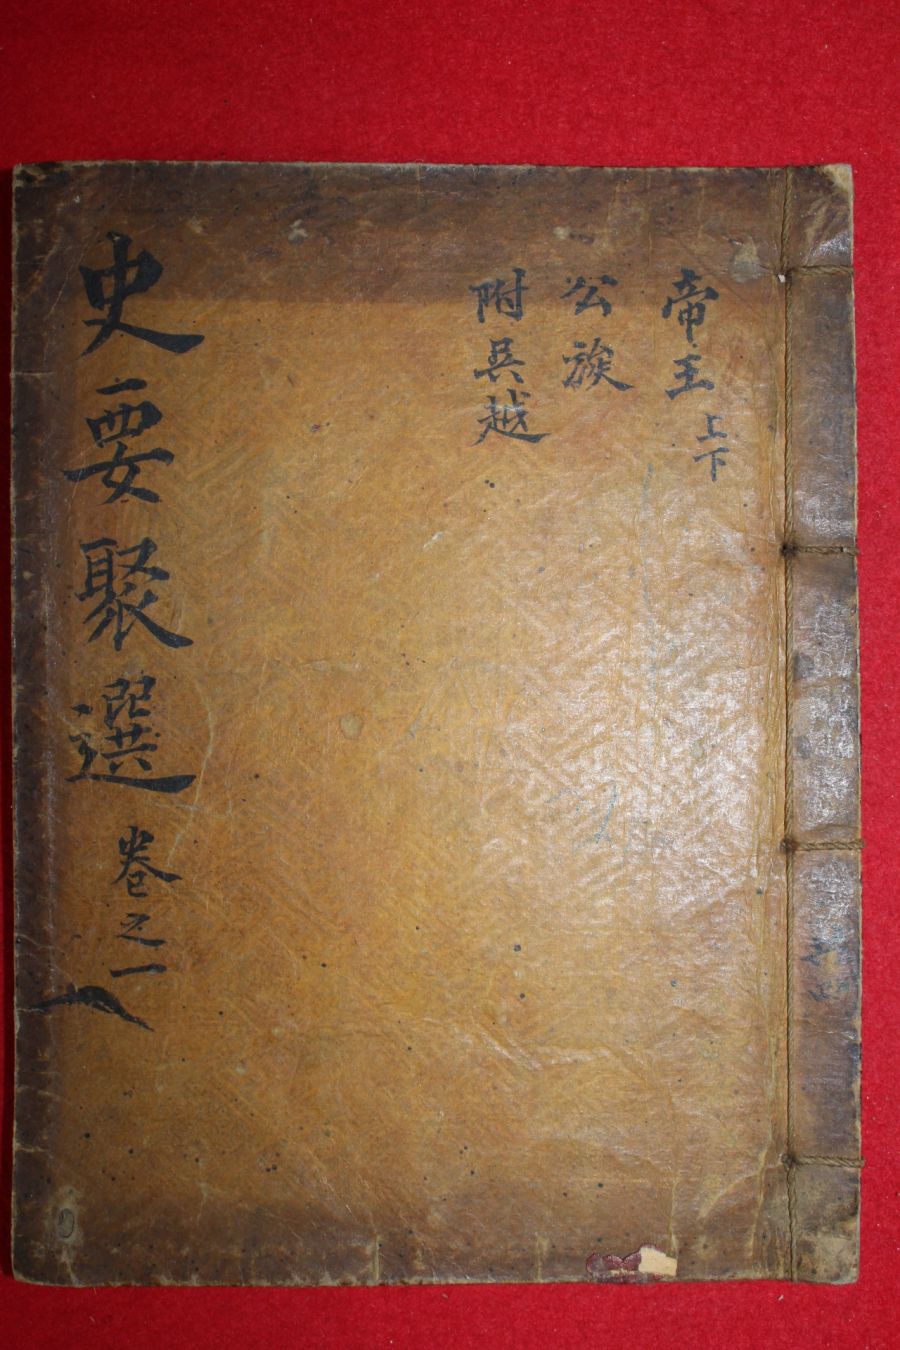 帝王 上下
公族
附吳越
史要聚選 卷之一